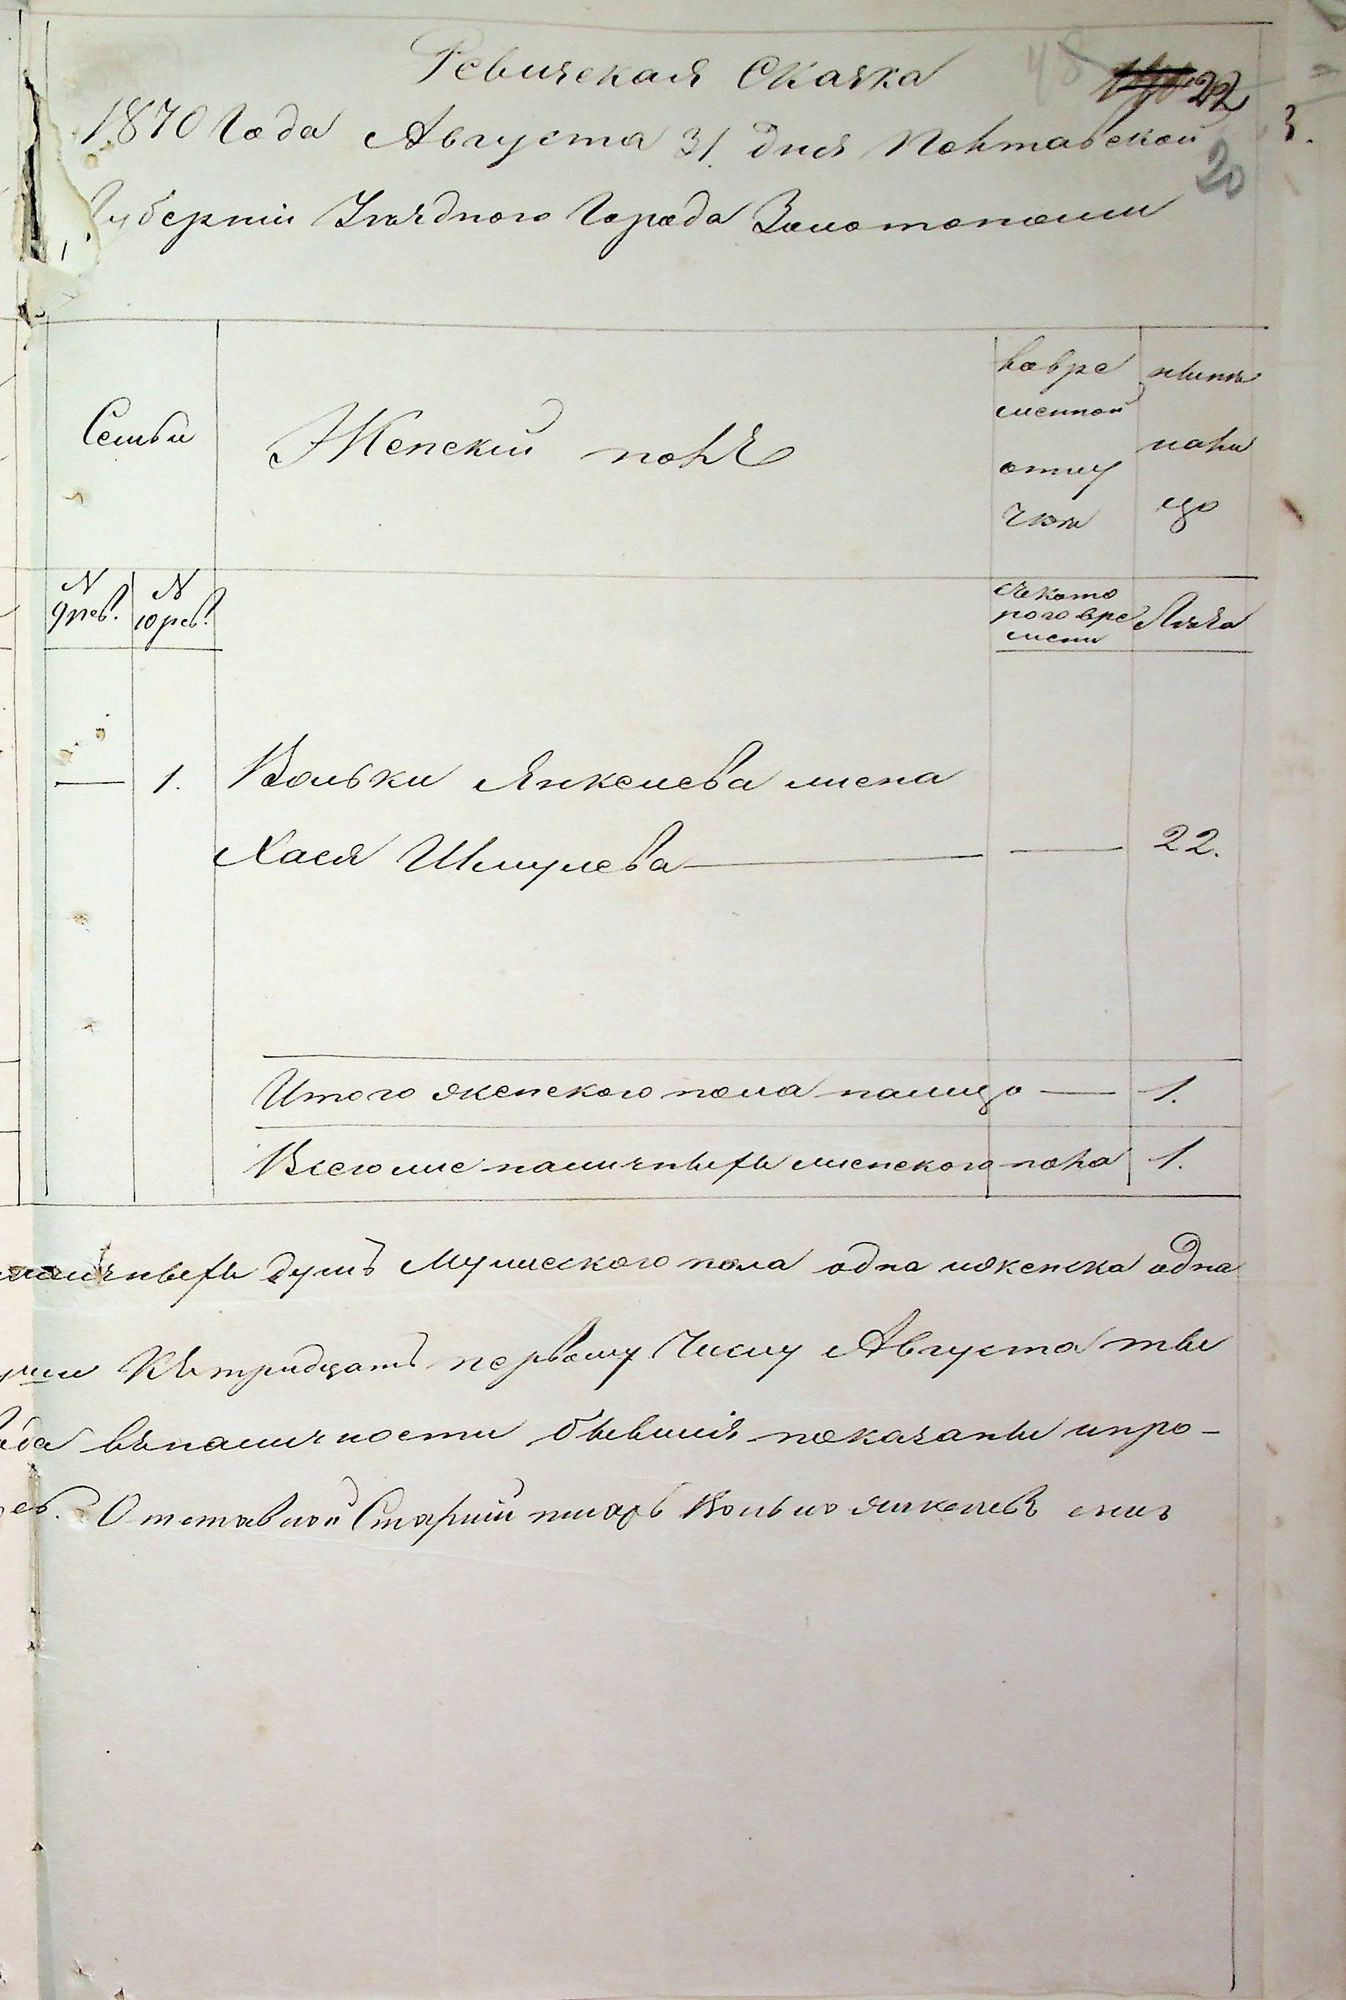 Ревизская Сказка
48 22
1870 Года Августа 31 дня Полтавской 3.
20
Губернии Уездного Города Золотоноши
Семьи
Женский полъ
во вре
менной
отлу
чки
ныне
нали
цо
N
9 рев.
N
10 рев.
съ кото
рого вре
мени
Лѣта
— 1. Вольки Янкелева жена
Хася Шмулева — — 22.
Итого женского пола налицо — 1.
Всего же наличныхъ женского пола 1.
наличныхъ душъ Мужеского пола одна и женска одна
къ тридцать первому Числу Августа
въ наличности бывшия показаны и про-
Отставной Старший писарь Волько Янкелевъ